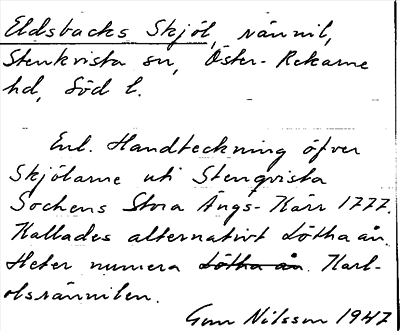 Eldsbacks Skjöl, rännil,
Stenkvista sn, Öster-Rekarne
hd, Söd l.
Enl. Handteckning öfver
Skjölarne uti Stenqvista
Sochens Stora Ängs-Karr 1777.
Kallades alternativt Lötha ån.
Heter numera Lötha ån. Karl-
olsrännilen.
Gun Nilsson 1947